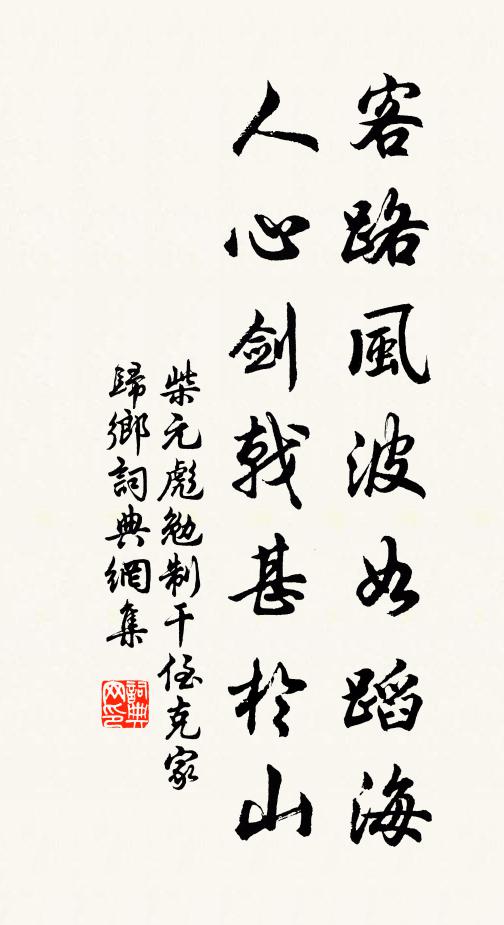 客路風波如蹈海
人心劍戟甚於山
柴元彪勉制干侄克家
歸鄉詞典網集
詞典
网印